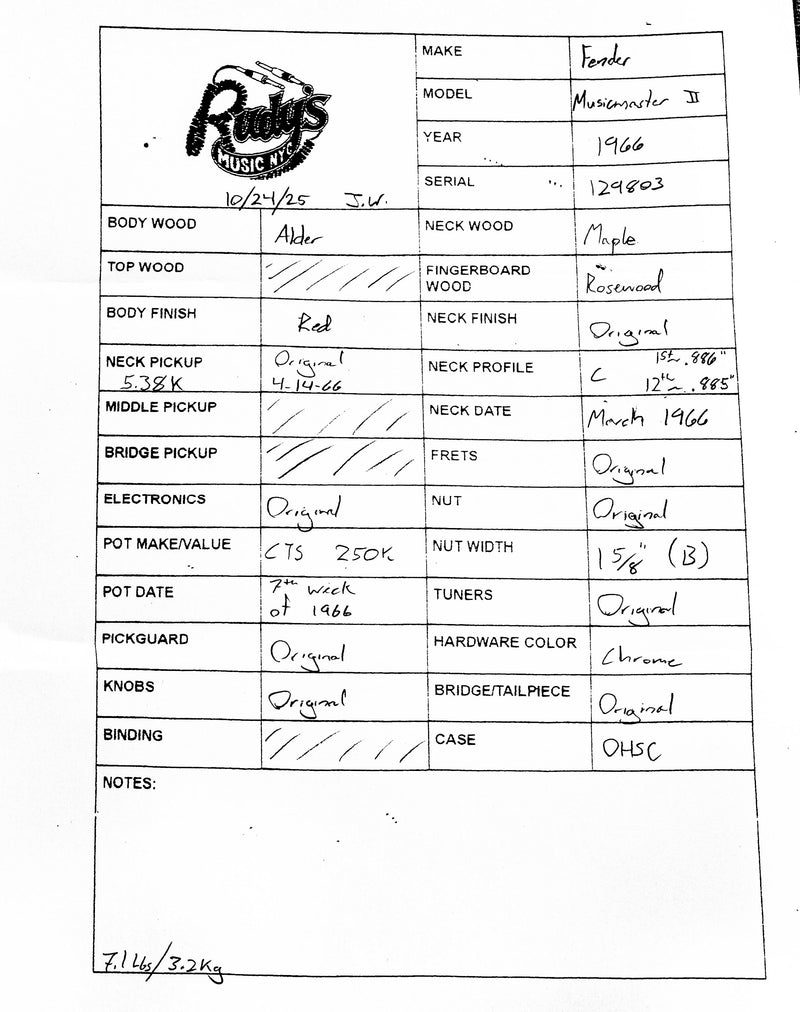 Rudy's
MUSIC NYC
10/24/25 J.W.
MAKE Fender
MODEL Musicmaster II
YEAR 1966
SERIAL 129803
BODY WOOD Alder
NECK WOOD Maple
TOP WOOD
FINGERBOARD
WOOD Rosewood
BODY FINISH Red
NECK FINISH Original
NECK PICKUP Original
5.38K 4-14-66
NECK PROFILE C 1st ~ .886"
12th ~ .885"
MIDDLE PICKUP
NECK DATE March 1966
BRIDGE PICKUP
FRETS Original
ELECTRONICS Original
NUT Original
POT MAKE/VALUE CTS 250K
NUT WIDTH 1 5/8" (B)
POT DATE 7th week
of 1966
TUNERS Original
PICKGUARD Original
HARDWARE COLOR Chrome
KNOBS Original
BRIDGE/TAILPIECE Original
BINDING
CASE OHSC
NOTES:
7.1 Lbs/3.2Kg